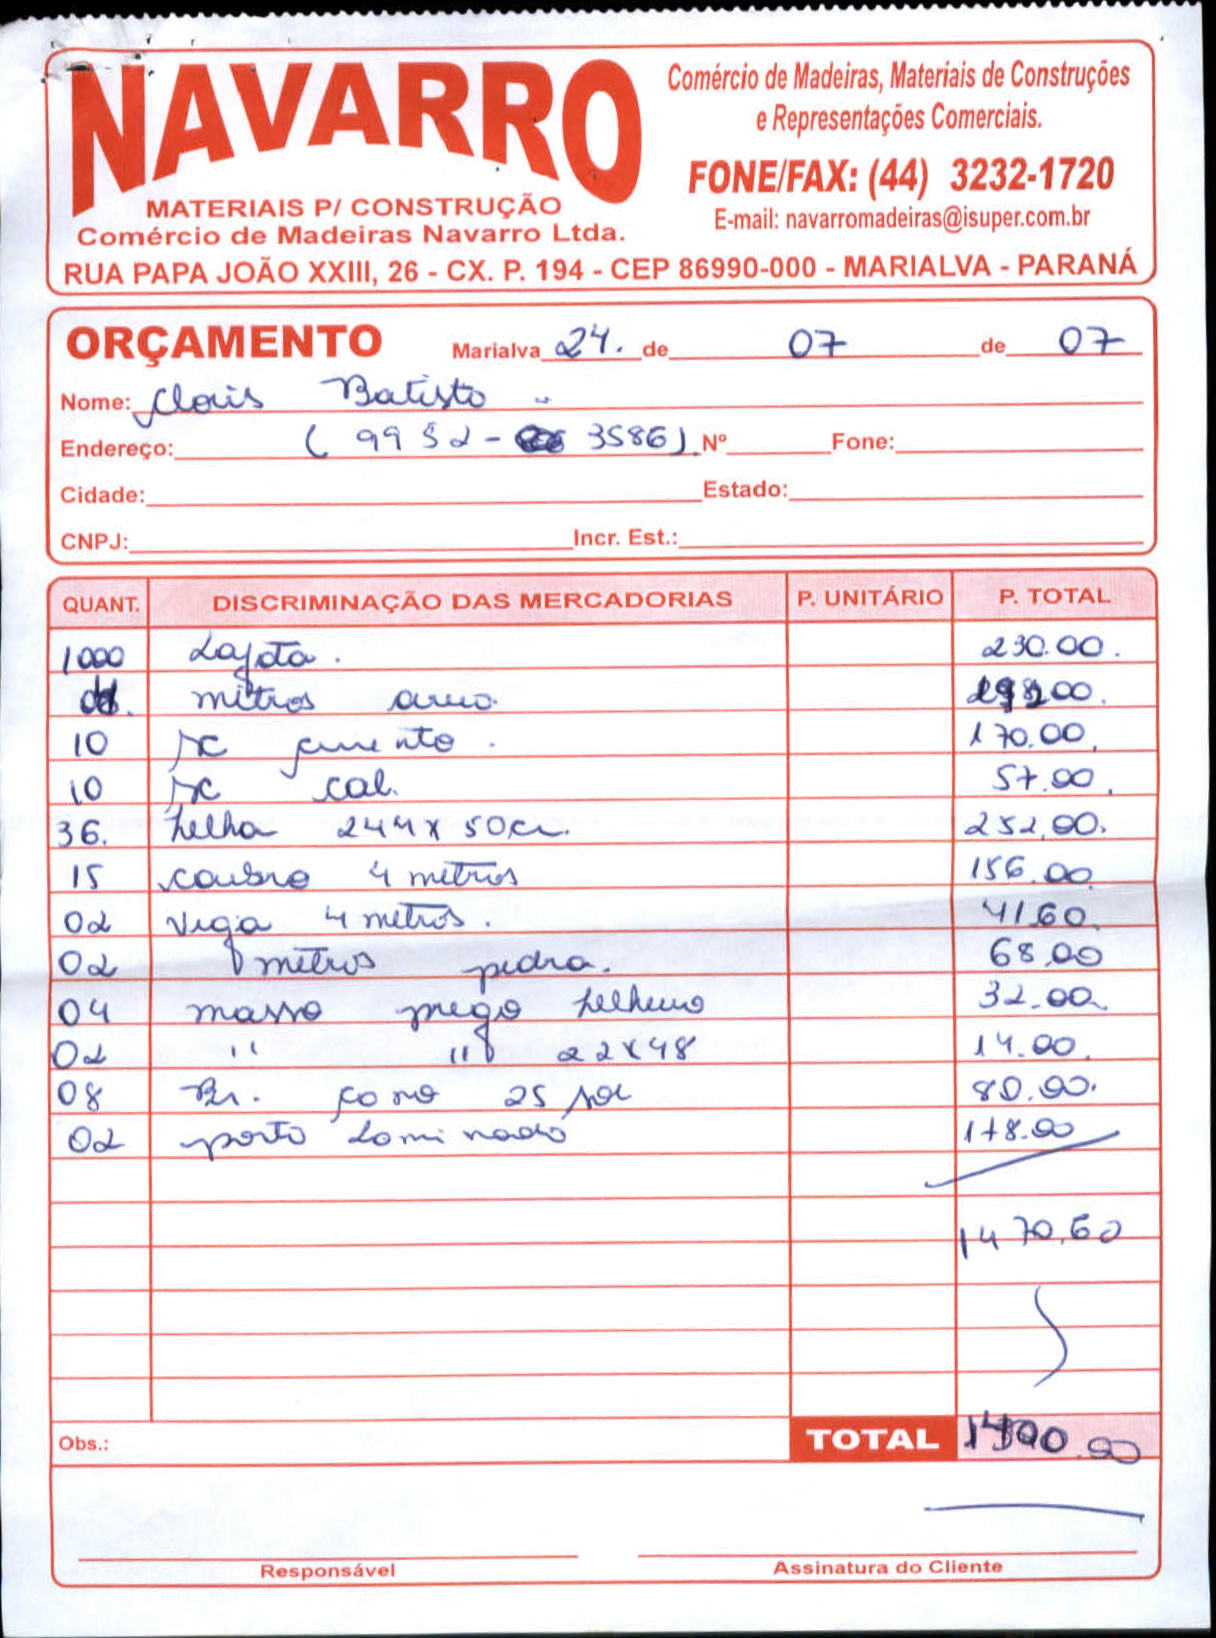 NAVARRO
MATERIAIS P/ CONSTRUÇÃO
Comércio de Madeiras Navarro Ltda.
Comércio de Madeiras, Materiais de Construções
e Representações Comerciais.
FONE/FAX: (44) 3232-1720
E-mail: navarromadeiras@isuper.com.br
RUA PAPA JOÃO XXIII, 26 - CX. P. 194 - CEP 86990-000 - MARIALVA - PARANÁ
ORÇAMENTO Marialva 24. de 07 de 07
Nome: Batista
Endereço: (9952- 3586) Nº Fone:
Cidade: Estado:
CNPJ: Incr. Est.:
QUANT. DISCRIMINAÇÃO DAS MERCADORIAS P. UNITÁRIO P. TOTAL
1000 Lajota. 230.00.
metros
10 sc 170.00.
10 sc cal. 57.00.
36. telha 244 x 50cm. 252,00.
15 caibro 4 metros 156.00
02 viga 4 metros. 41.60.
02 metros pedra. 68.00
04 masso prego telheiro 32.00
02 " " 22x48 14.00.
08 Br. 25 80.00.
02 porta Laminado 178.00
1470,60
Obs.: TOTAL
Responsável Assinatura do Cliente